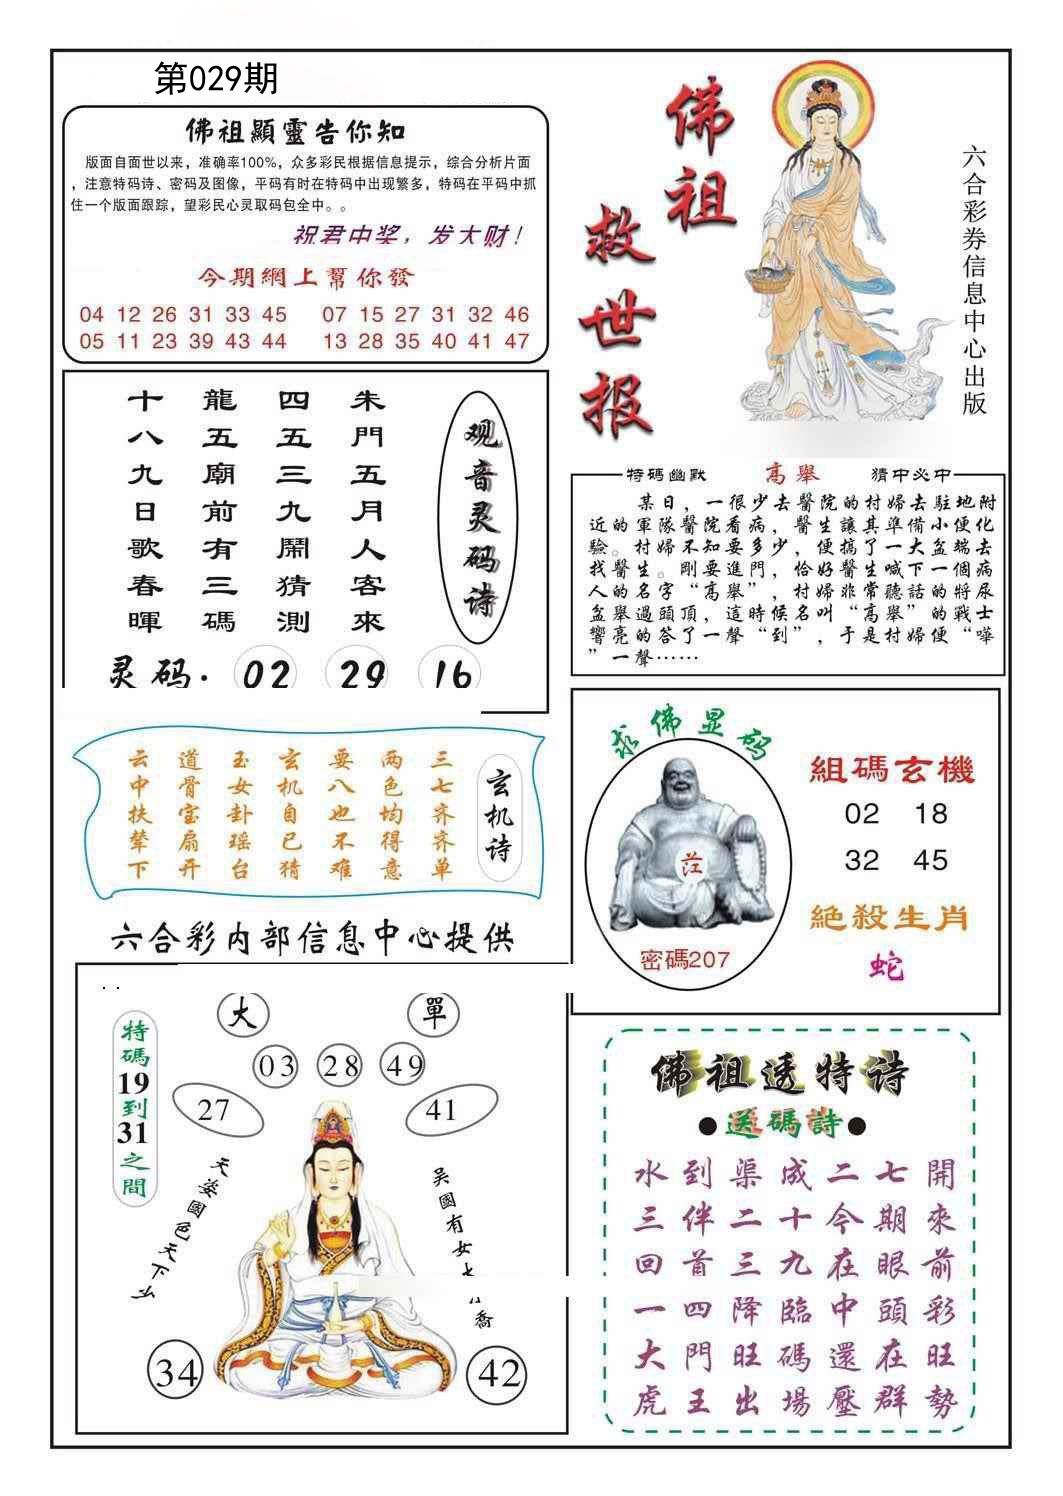 第029期
佛祖顯靈告你知
版面自面世以来，准确率100%，众多彩民根据信息提示，综合分析片面
，注意特码诗、密码及图像，平码有时在特码中出现繁多，特码在平码中抓
住一个版面跟踪，望彩民心灵取码包全中。。
祝君中奖，发大财！
今期網上幫你發
04 12 26 31 33 45 07 15 27 31 32 46
05 11 23 39 43 44 13 28 35 40 41 47
佛祖
救世报
六合彩券信息中心出版
观音灵码诗
朱門五月人客來
四五三九鬧猜測
龍五廟前有三碼
十八九日歌春暉
灵码. 02 29 16
特碼幽默 高舉 猜中必中
某日，一很少去醫院的村婦去駐地附
近的軍隊醫院看病，醫生讓其準備小便化
驗。村婦不知要多少，便搞了一大盆端去
找醫生。剛要進門，恰好醫生喊下一個病
人的名字“高舉”，村婦非常聽話的將尿
盆舉過頭頂，這時候名叫“高舉”的戰士
響亮的答了一聲“到”，于是村婦便“嘩
”一聲……
玄机诗
三七齐齐单
两色均得意
要八也不难
玄机自已猜
玉女卦瑶台
道骨宝扇开
云中扶辇下
求佛显码
密碼207
組碼玄機
02 18
32 45
絕殺生肖
蛇
六合彩内部信息中心提供
特碼19到31之間
大 單
03 28 49
27 41
天姿國色天下
吴國有女
喬
34 42
佛祖透特诗
●送碼詩●
水到渠成二七開
三伴二十今期來
回首三九在眼前
一四降臨中頭彩
大門旺碼還在旺
虎王出場壓群勢